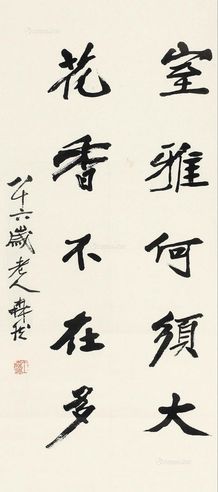 室雅何須大
花香不在多
八十六歲老人